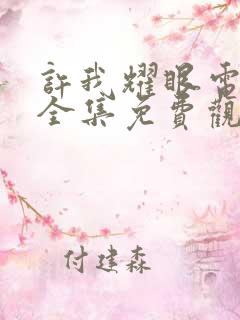 許我耀眼電
全集免費觀
付建森